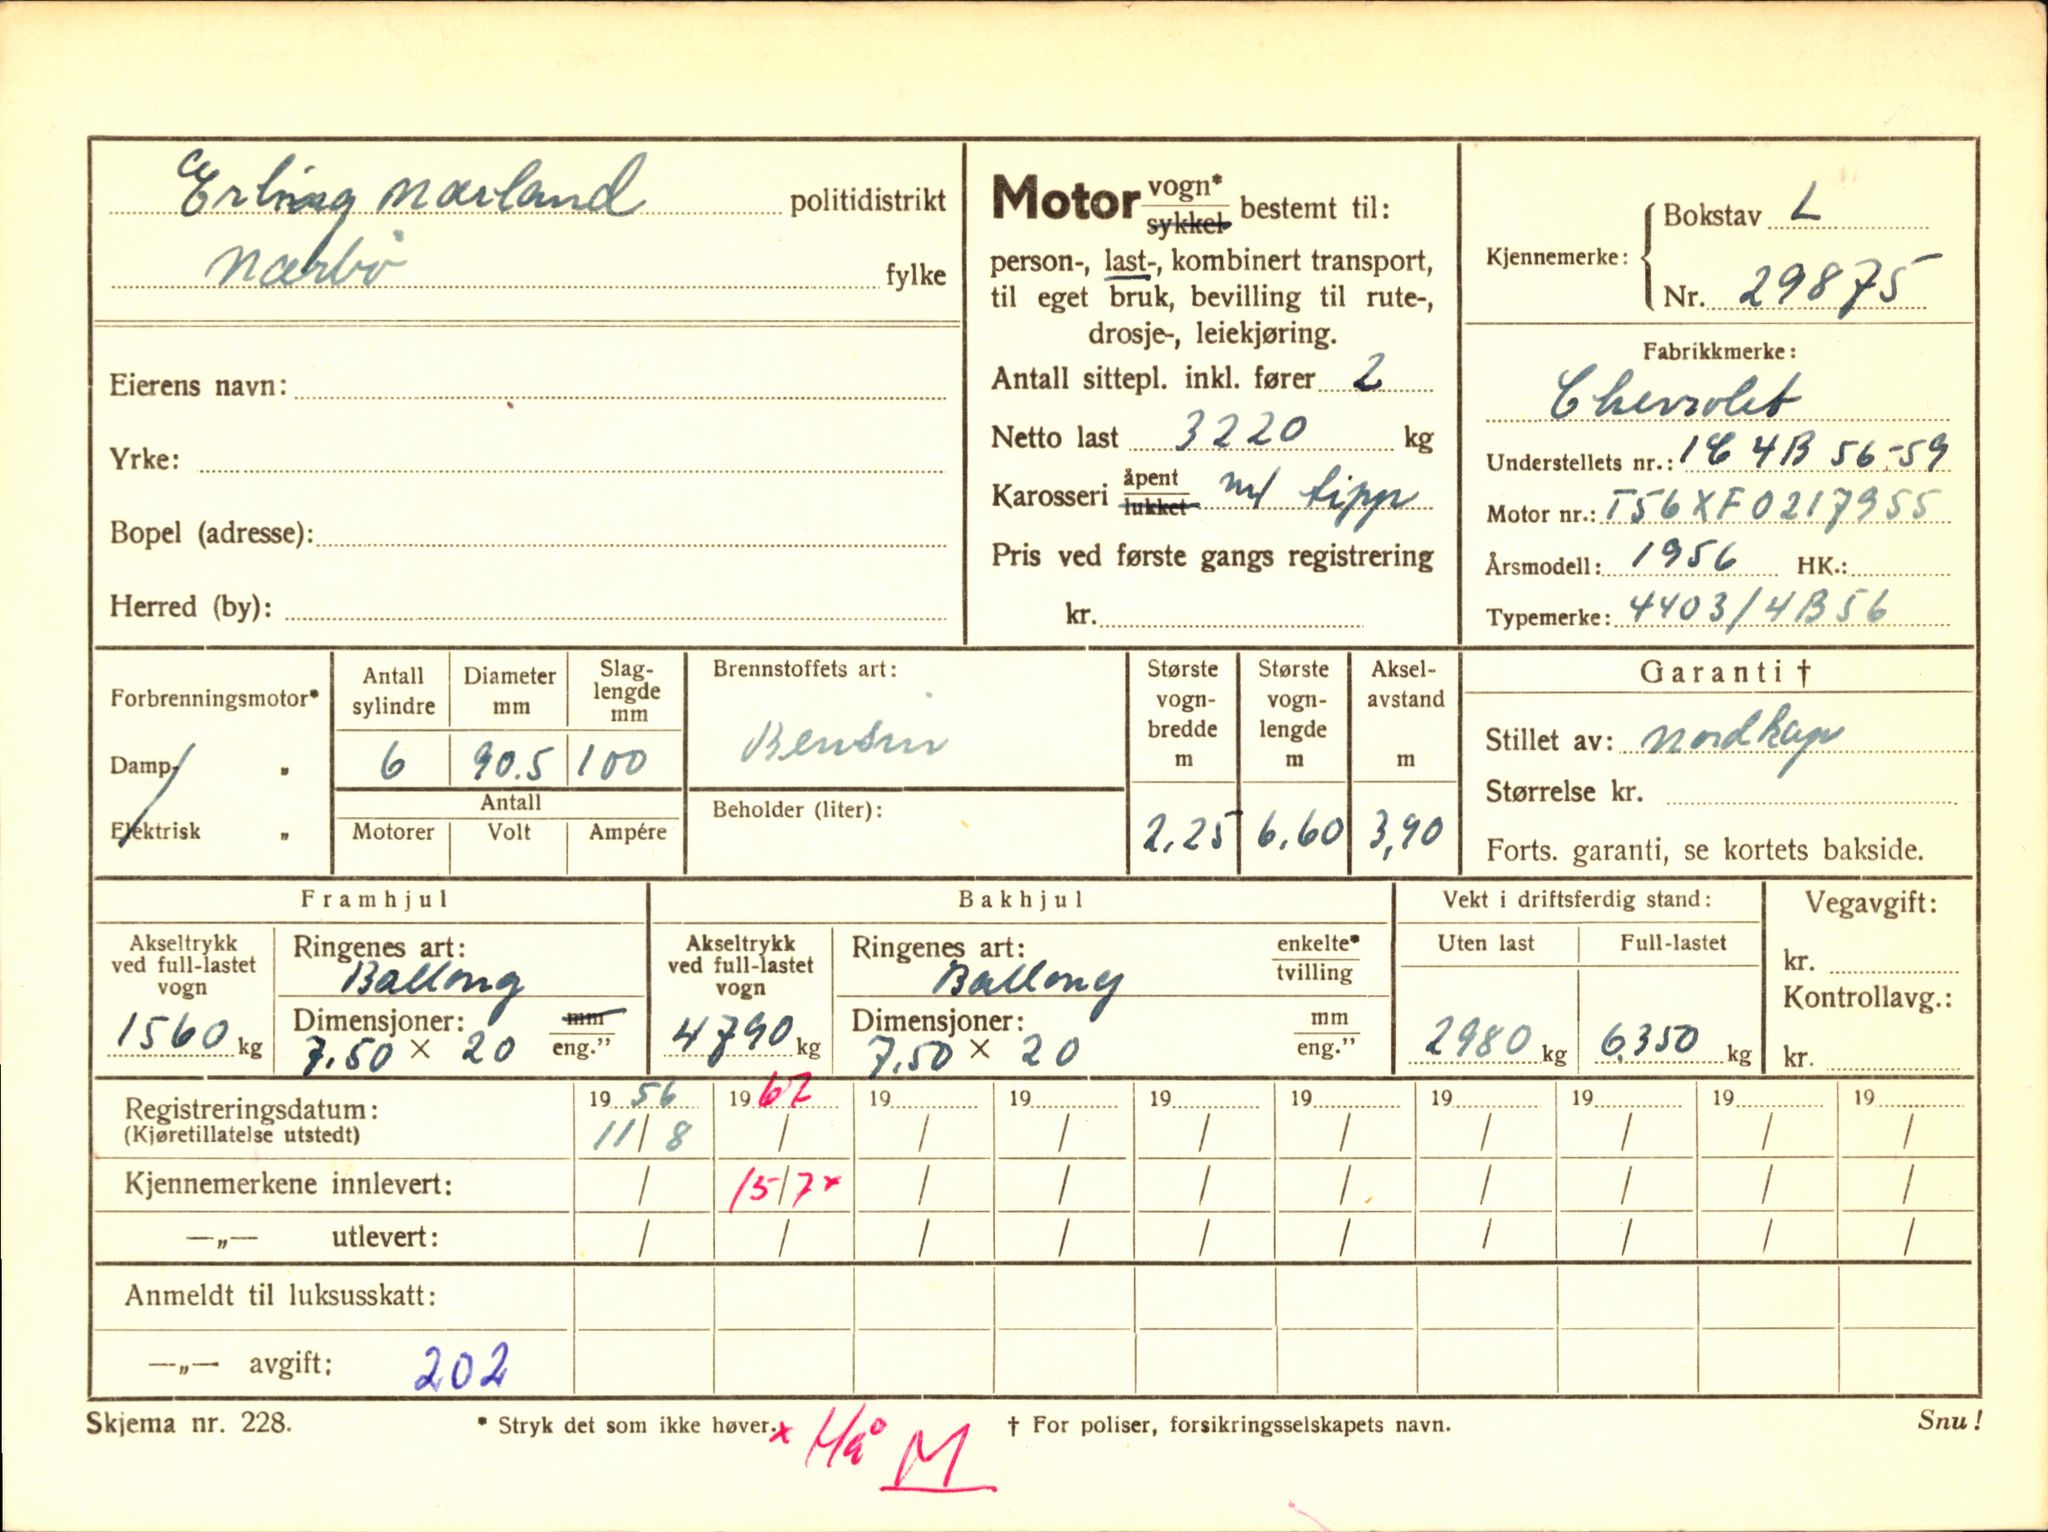 Erling Nærland politidistrikt
Nærbö fylke
Eierens navn:
Yrke:
Bopel (adresse):
Herred (by):
Motor vogn* sykkel bestemt til:
person-, last-, kombinert transport,
til eget bruk, bevilling til rute-,
drosje-, leiekjøring.
Antall sittepl. inkl. fører 2
Netto last 3220 kg
Karosseri åpent lukket m/ tipp
Pris ved første gangs registrering
kr.
Kjennemerke: Bokstav L
Nr. 29875
Fabrikkmerke:
Chevrolet
Understellets nr.: 1C 4B 56-59
Motor nr.: T56XF0217955
Årsmodell: 1956 HK.:
Typemerke: 4403/4B56
Forbrenningsmotor*
Damp- „
Elektrisk „
Antall sylindre
6
Diameter mm
90.5
Slag-lengde mm
100
Antall
Motorer Volt Ampére
Brennstoffets art:
Bensin
Beholder (liter):
Største vogn-bredde m
2,25
Største vogn-lengde m
6,60
Aksel-avstand m
3,90
Garanti †
Stillet av: Nordkap
Størrelse kr.
Forts. garanti, se kortets bakside.
Framhjul
Akseltrykk ved full-lastet vogn
1560 kg
Ringenes art:
Ballong
Dimensjoner: mm
7.50 × 20 eng.”
Bakhjul
Akseltrykk ved full-lastet vogn
4790 kg
Ringenes art: enkelte* tvilling
Ballong
Dimensjoner: mm
7.50 × 20 eng.”
Vekt i driftsferdig stand:
Uten last Full-lastet
2980 kg 6350 kg
Vegavgift:
kr.
Kontrollavg.:
kr.
Registreringsdatum: 19 56 19 67 19 19 19 19 19 19 19 19
(Kjøretillatelse utstedt) 11/8 / / / / / / / / /
Kjennemerkene innlevert: / 15/7 x / / / / / / / /
—„— utlevert: / / / / / / / / / /
Anmeldt til luksusskatt:
—„— avgift: 202
Skjema nr. 228. * Stryk det som ikke høver. x Hå M † For poliser, forsikringsselskapets navn. Snu!